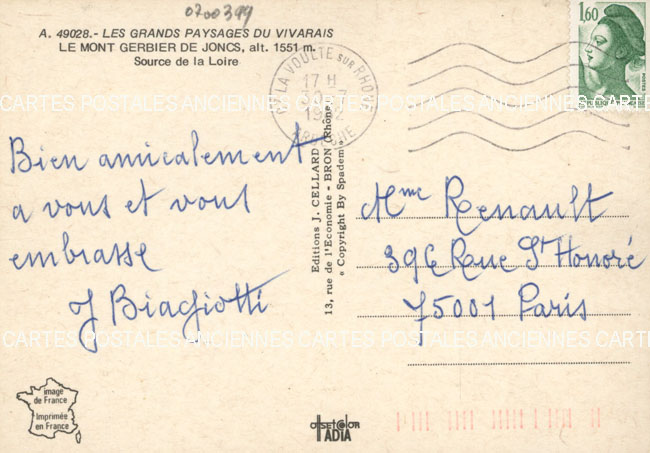 0700399
A. 49028.- LES GRANDS PAYSAGES DU VIVARAIS
LE MONT GERBIER DE JONCS, alt. 1551 m.
Source de la Loire
LA VOULTE SUR RHÔNE
17 H
ARDECHE
1,60
POSTES
CARTES POSTALES ANCIENNES CARTES POSTALES ANCIENNES
Bien amicalement
a vous et vous
embrasse
J Biagiotti
Editions J. CELLARD
13, rue de l'Economie - BRON (Rhône)
« Copyright By Spadem »
Mme Renault
396 Rue St Honoré
75001 Paris
CARTES POSTALES ANCIENNES CARTES POSTALES ANCIENNES
image
de France
Imprimée
en France
offsetcolor
IADIA